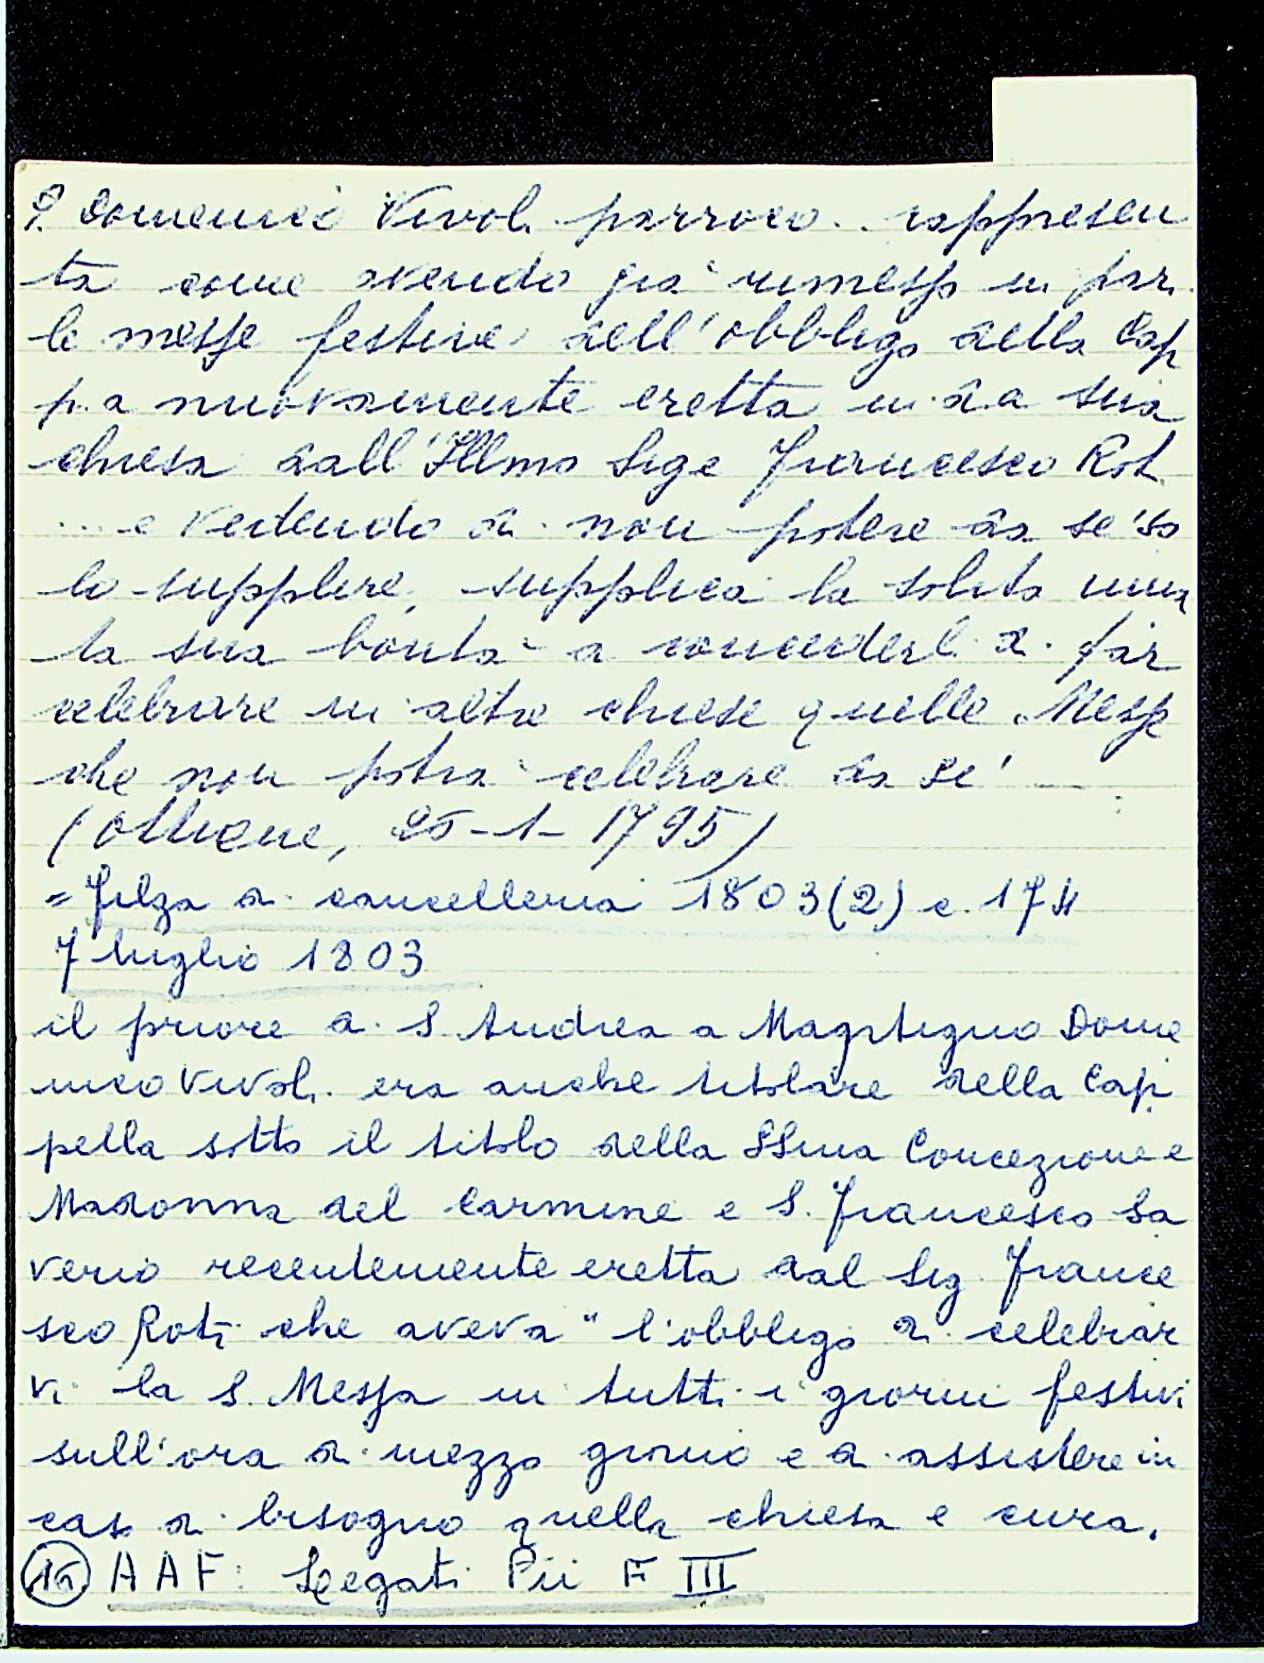 P. Domenico Vivoli parroco .. rappresen
ta come avendo già rimesso in par.
le messe festive dell'obbligo della Cap
p.a nuovamente eretta in d.a sua
chiesa dall'Illmo Sige Francesco Roti
... e vedendo di non potere da se' so
lo supplire, supplica la solita inna
ta sua bontà a concederli di far
celebrare in altre chiese quelle Messe
che non potrà celebrare da se' ...
(ottiene, 25-1-1795)
= Filza di cancelleria 1803(2) c. 174
7 luglio 1803
il priore di S Andrea a Mogstigno Dome
nico Vivoli era anche titolare della Cap
pella sotto il titolo della SSma Concezione e
Madonna del Carmine e S. Francesco Sa
verio recentemente eretta dal Sig. France
sco Roti che aveva "l'obbligo di celebrar
vi la S. Messa in tutti i giorni festivi
sull'ora di mezzo giorno e di assistere in
caso di bisogno quella chiesa e cura.
16 AAF: Legati Pii F III